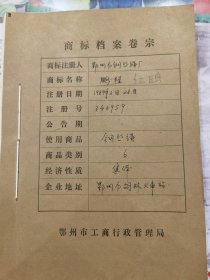 商标档案卷宗
商标注册人 鄂州市钢丝绳厂
商标名称 鹏程
注册日期 1989年2月28日
注册号 340959
公告期
使用商品 钢丝绳
商品类别 6
经济性质 集体
企业地址 鄂州市
鄂州市工商行政管理局